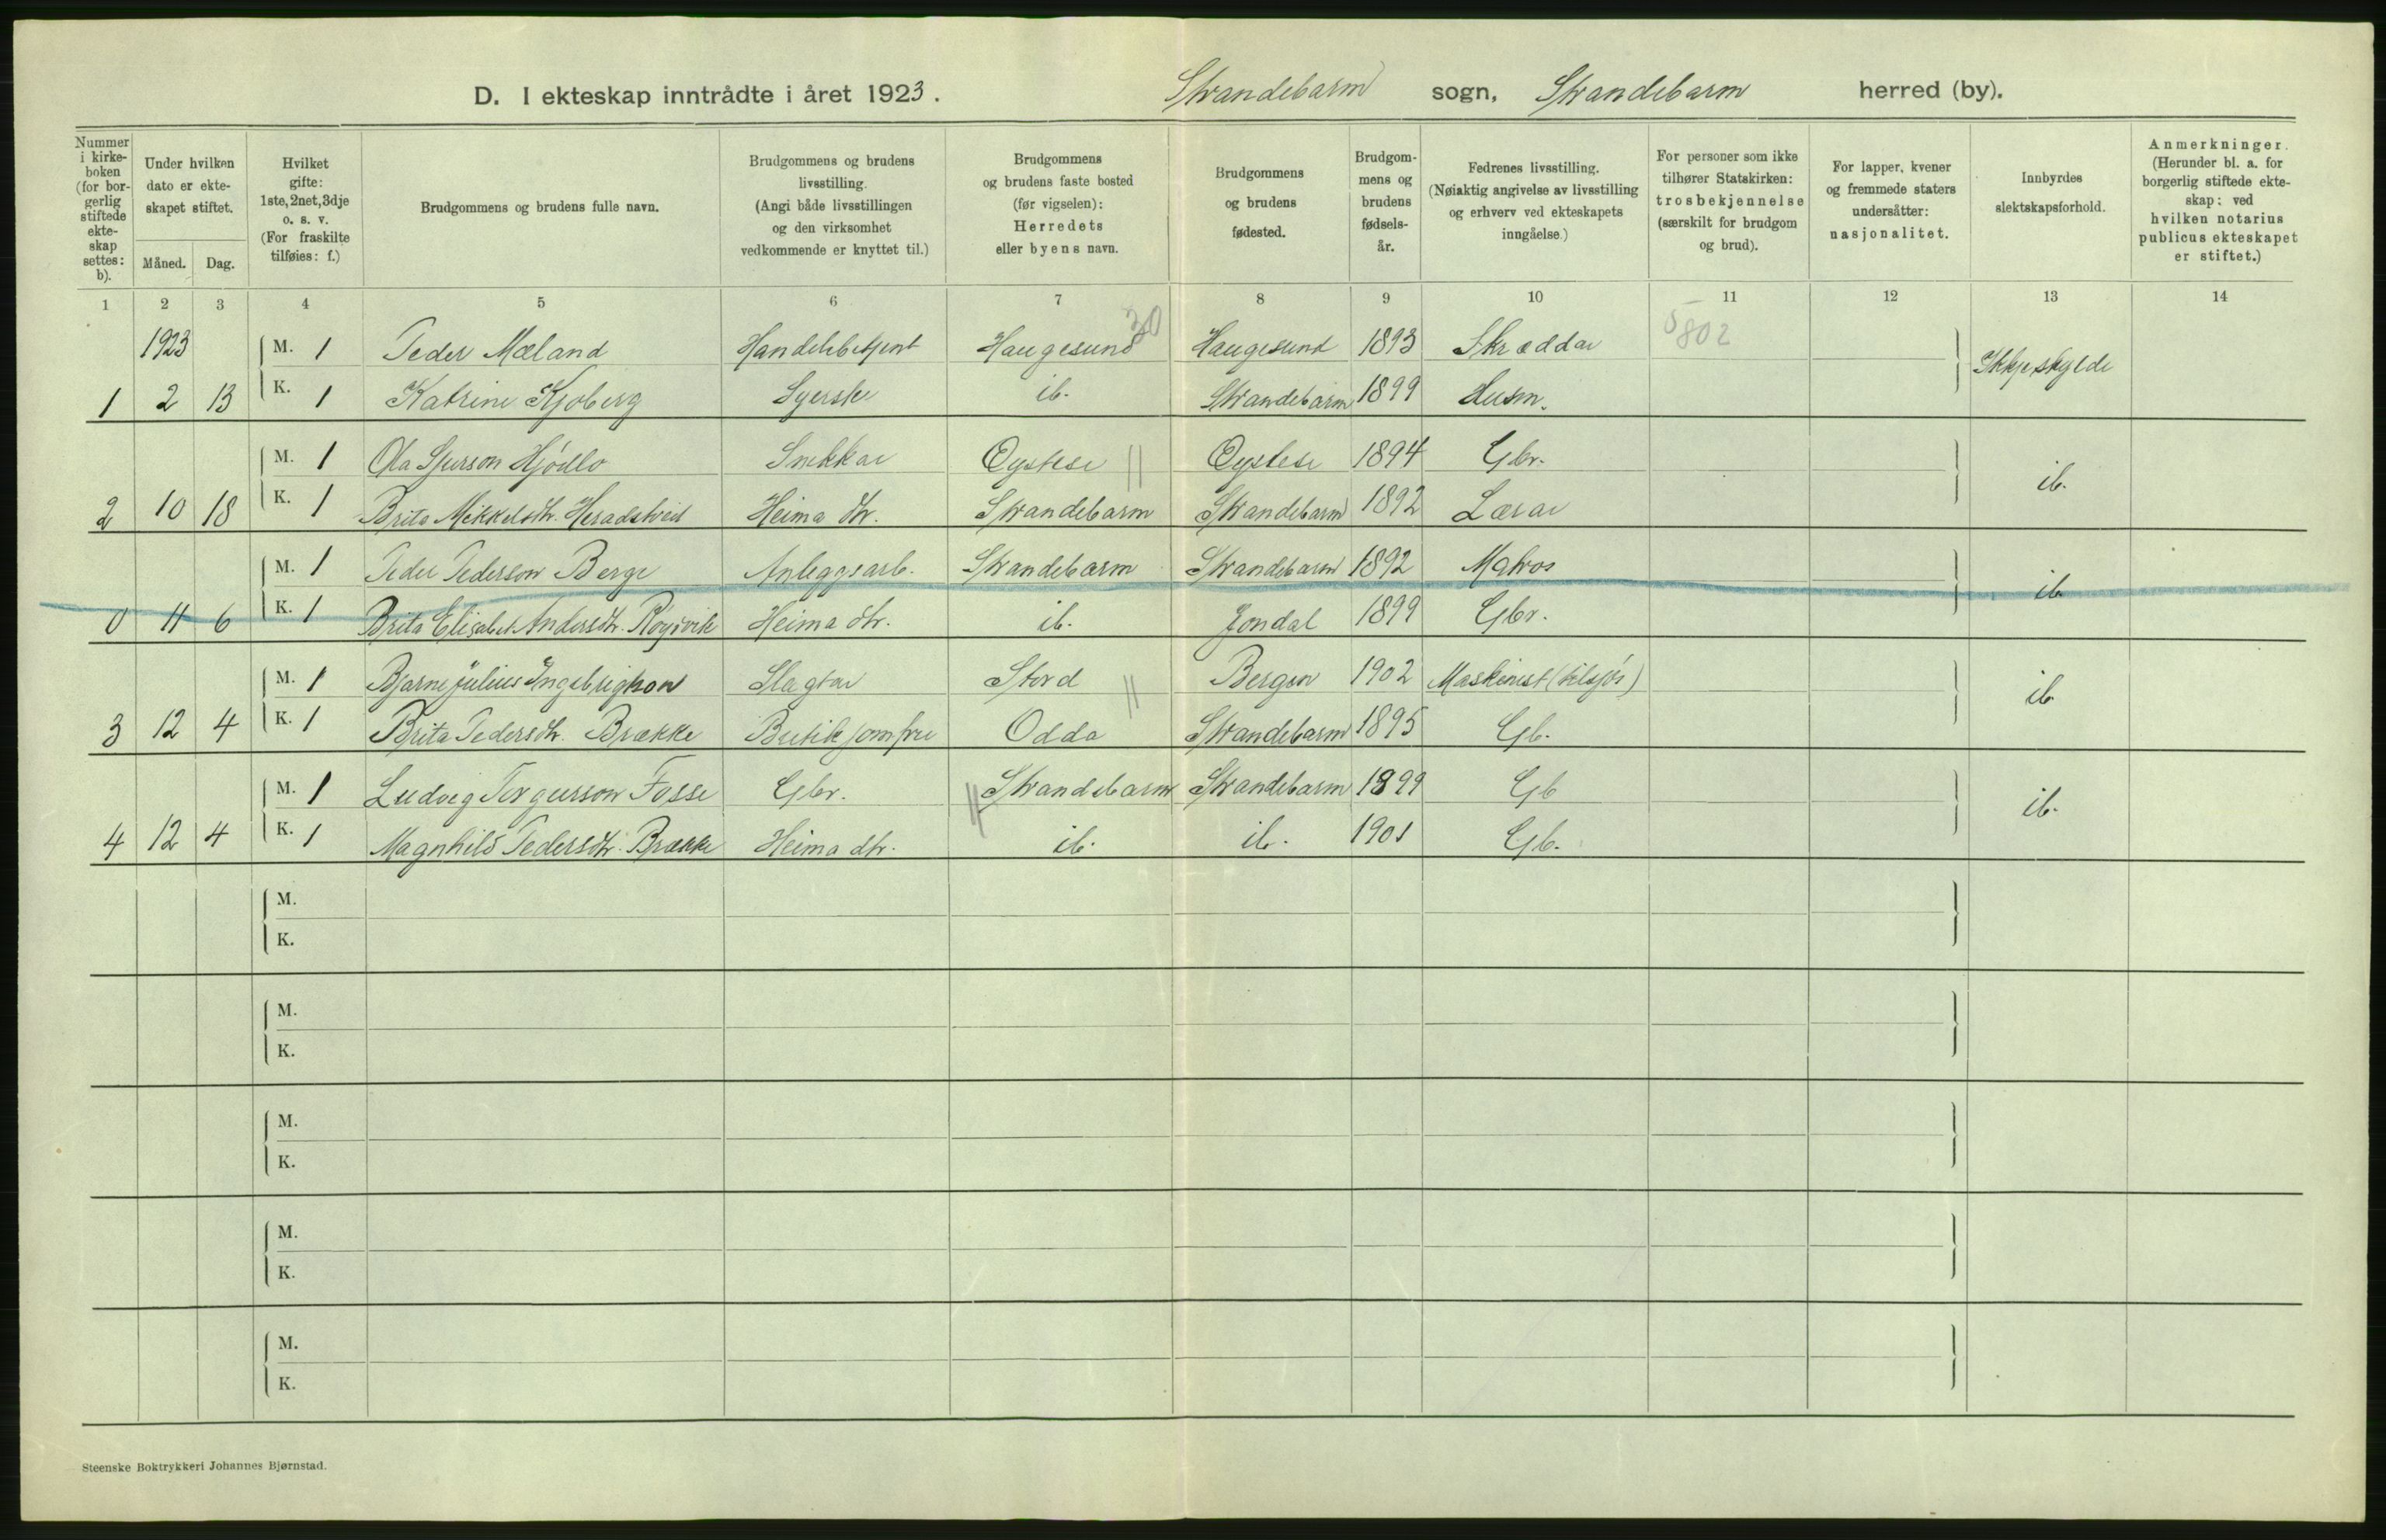 D. I ekteskap inntrådte i året 1923. Strandebarm sogn, Strandebarm herred (by).
Nummer i kirke- boken (for bor- gerlig stiftede ekte- skap settes: b).
Under hvilken dato er ekte- skapet stiftet.
Måned. Dag.
Hvilket gifte: 1ste, 2net, 3dje o. s. v. (For fraskilte tilføies: f.)
Brudgommens og brudens fulle navn.
Brudgommens og brudens livsstilling. (Angi både livsstillingen og den virksomhet vedkommende er knyttet til.)
Brudgommens og brudens faste bosted (før vigselen): Herredets eller byens navn.
Brudgommens og brudens fødested.
Brudgom- mens og brudens fødsels- år.
Fedrenes livsstilling. (Nøiaktig angivelse av livsstilling og erhverv ved ekteskapets inngåelse.)
For personer som ikke tilhører Statskirken: trosbekjennelse (særskilt for brudgom og brud).
For lapper, kvener og fremmede staters undersåtter: nasjonalitet.
Innbyrdes slektskapsforhold.
Anmerkninger. (Herunder bl. a. for borgerlig stiftede ekte- skap: ved hvilken notarius publicus ekteskapet er stiftet.)
1 2 3 4 5 6 7 8 9 10 11 12 13 14
1923 M. 1 Peder Mæland Handelsbetjent Haugesund 30 Haugesund 1893 Skræddar 5802
Ikkje skylde
1 2 13 K. 1 Katrine Kjoberg Syerske ib. Strandebarm 1899 Husm.
M. 1 Ola Sjurson Hjødlo Snekkar Øystese Øystese 1894 Gbr.
ib.
2 10 18 K. 1 Brita Mikkelsdtr. Heradstveit Heima dtr. Strandebarm Strandebarm 1892 Lærar
M. 1 Peder Pederson Berge Anleggsarb. Strandebarm Strandebarm 1892 Matros
ib.
0 11 6 K. 1 Brita Elisabet Andersdtr. Røyrvik Heima dtr. ib. Jondal 1899 Gbr.
M. 1 Bjarne Julius Ingebrigtson Slagtar Stord Bergen 1902 Maskinist (tilsjøs)
ib.
3 12 4 K. 1 Brita Pedersdtr. Brække Butikjomfru Odda Strandebarm 1895 Gb.
M. 1 Ludvig Torgeirson Fosse Gbr. Strandebarm Strandebarm 1899 Gb
ib.
4 12 4 K. 1 Magnhild Pedersdtr. Brække Heima dtr. ib. ib. 1901 Gb.
M.
K.
M.
K.
M.
K.
M.
K.
M.
K.
Steenske Boktrykkeri Johannes Bjørnstad.